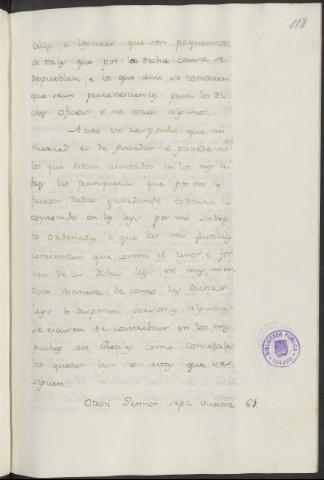 118
villas e logares que son pequennos
a tales que por la dicha causa se
despueblan, e los que ansi se tomaren
que sean pertenescientes para los di
chos oficios e no otros algunos.
A esto vos respondo que mi
merced es de guardar e guarde a
los que estan asentados en los mis li
bros las franquezas que por mi les
fueron dadas guardando todavia lo
contenido en las leyes por mi sobre
to ordenadas e que las mis justicias
consientan que contra el tenor e for
ma de las dichas leyes ni mas, ni en
otra manera de como las dichas
leyes lo disponen personas algunas
se escusen de contribuir en los mis
pechos asi Reales como concejales
las quales leyes son estas que se
siguen:
Otrosi Sennor, sepa vuestra 61
BIBLIOTECA PUBLICA
TOLEDO